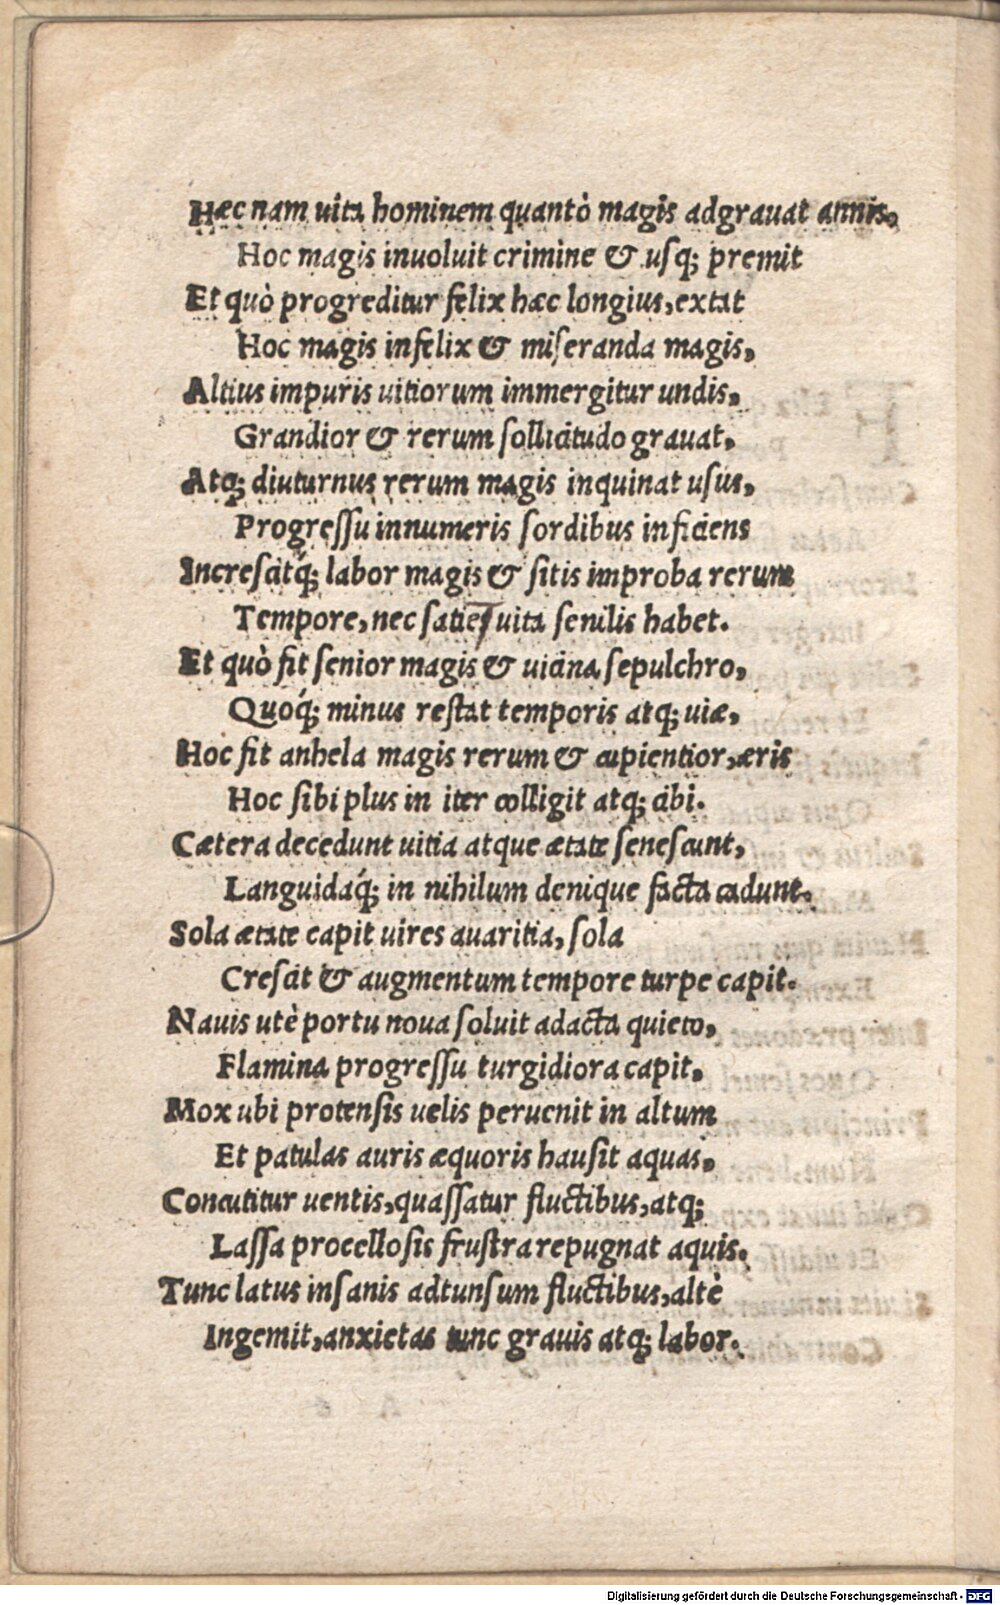 Hæc nam uita hominem quantò magis adgrauat annis.
Hoc magis inuoluit crimine & usq; premit
Et quò progreditur felix hæc longius, extat
Hoc magis infelix & miſeranda magis,
Altius impuris uitiorum immergitur undis,
Grandior & rerum ſollicitudo grauat,
Atq; diuturnus rerum magis inquinat uſus,
Progreſſu innumeris ſordibus inficiens
Increſcitq́; labor magis & ſitis improba rerum
Tempore, nec ſatiẽ uita ſenilis habet.
Et quò fit ſenior magis & uicina ſepulchro,
Quoq́; minus reſtat temporis atq; uiæ,
Hoc fit anhela magis rerum & cupientior, æris
Hoc ſibi plus in iter colligit atq; cibi.
Cætera decedunt uitia atque ætate ſeneſcunt,
Languidaq́; in nihilum denique facta cadunt.
Sola ætate capit uires auaritia, ſola
Creſcit & augmentum tempore turpe capit.
Nauis utè portu noua ſoluit adacta quieto,
Flamina progreſſu turgidiora capit,
Mox ubi protenſis uelis peruenit in altum
Et patulas auris æquoris hauſit aquas,
Concutitur uentis, quaſſatur fluctibus, atq;
Laſſa procelloſis fruſtra repugnat aquis.
Tunc latus inſanis adtunſum fluctibus, altè
Ingemit, anxietas tunc grauis atq; labor.
Digitalisierung gefördert durch die Deutsche Forschungsgemeinschaft - DFG